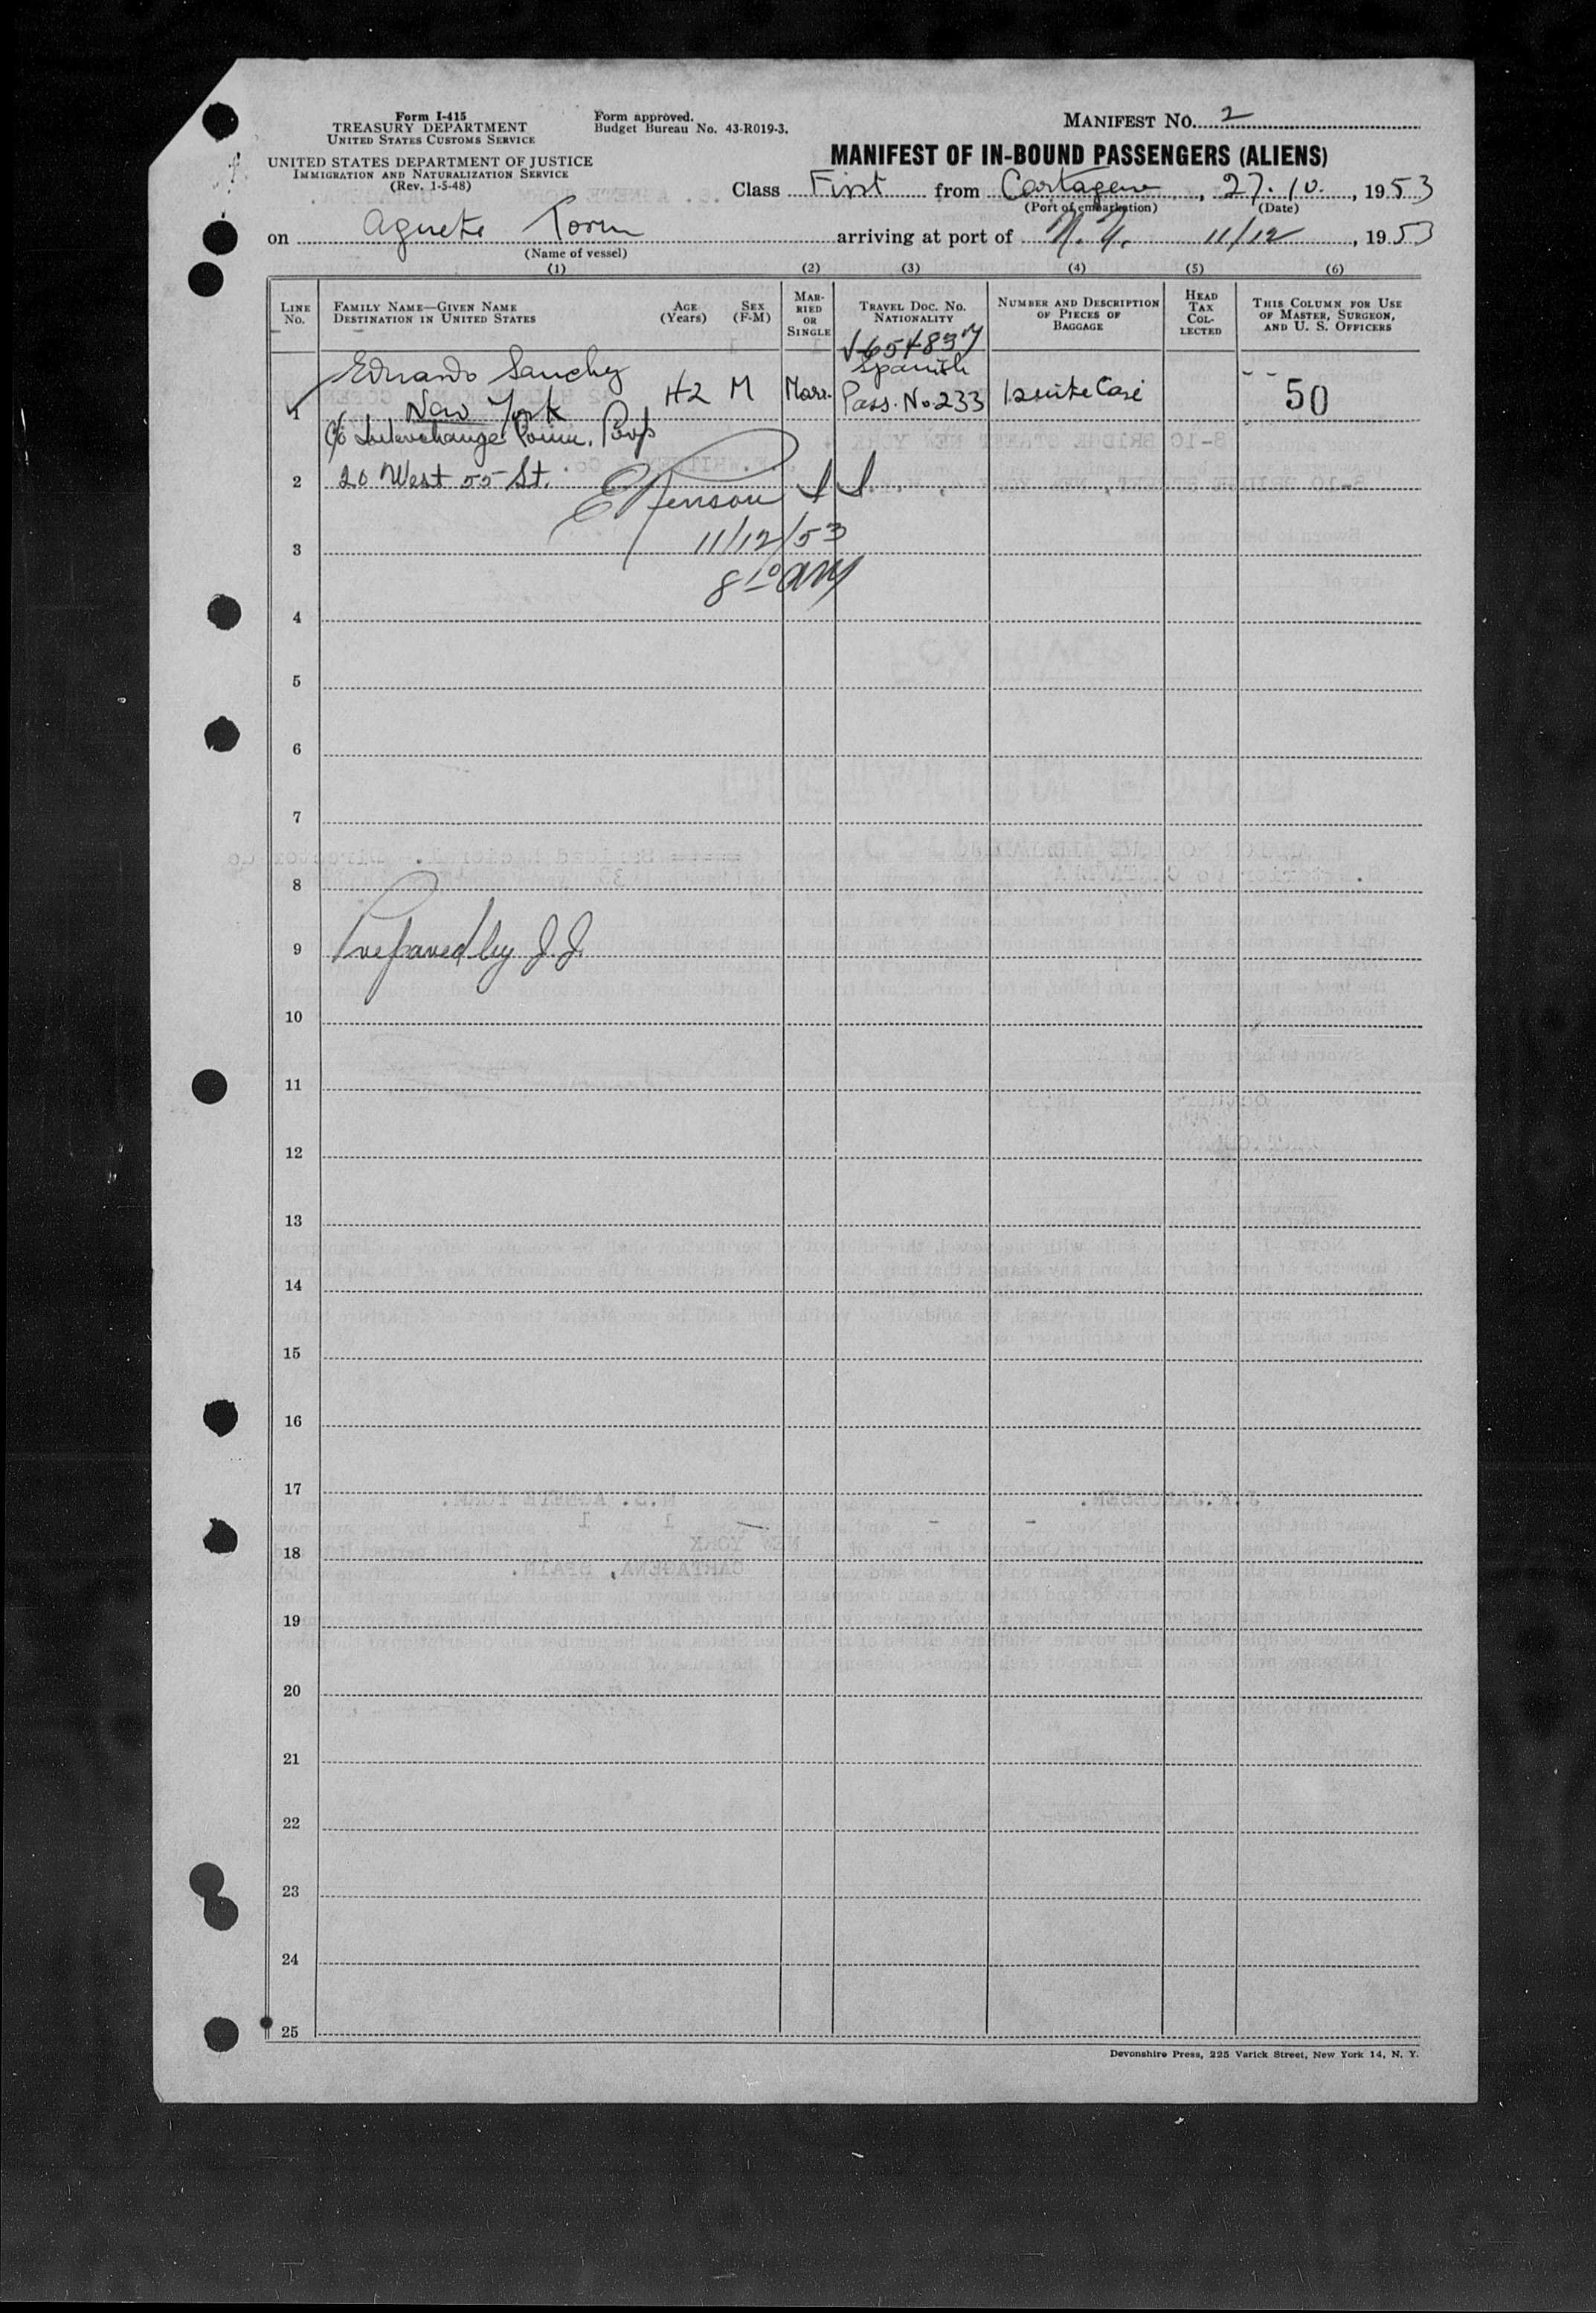 Form I-415
TREASURY DEPARTMENT
UNITED STATES CUSTOMS SERVICE
UNITED STATES DEPARTMENT OF JUSTICE
IMMIGRATION AND NATURALIZATION SERVICE
(Rev. 1-5-48)
Form approved.
Budget Bureau No. 43-R019-3.
MANIFEST NO. 2
MANIFEST OF IN-BOUND PASSENGERS (ALIENS)
Class First from Cartagena, 27.10., 1953
(Port of embarkation) (Date)
on Agnete Torm arriving at port of N.Y. 11/12, 1953
(Name of vessel)
(1) (2) (3) (4) (5) (6)
LINE No.
FAMILY NAME—GIVEN NAME
DESTINATION IN UNITED STATES
AGE (Years)
SEX (F-M)
MAR-RIED OR SINGLE
TRAVEL DOC. NO. NATIONALITY
NUMBER AND DESCRIPTION OF PIECES OF BAGGAGE
HEAD TAX COL-LECTED
THIS COLUMN FOR USE OF MASTER, SURGEON, AND U. S. OFFICERS
V654837
1 Eduardo Sanchez 42 M Marr. Spanish Pass. No 233 1 suite Case 50
New York
c/o Interchange Comm.
2 20 West 55 St.
3 11/12/53
8 10 AM
4
5
6
7
8
9 Prepared by J.J.
10
11
12
13
14
15
16
17
18
19
20
21
22
23
24
25
Devonshire Press, 225 Varick Street, New York 14, N. Y.